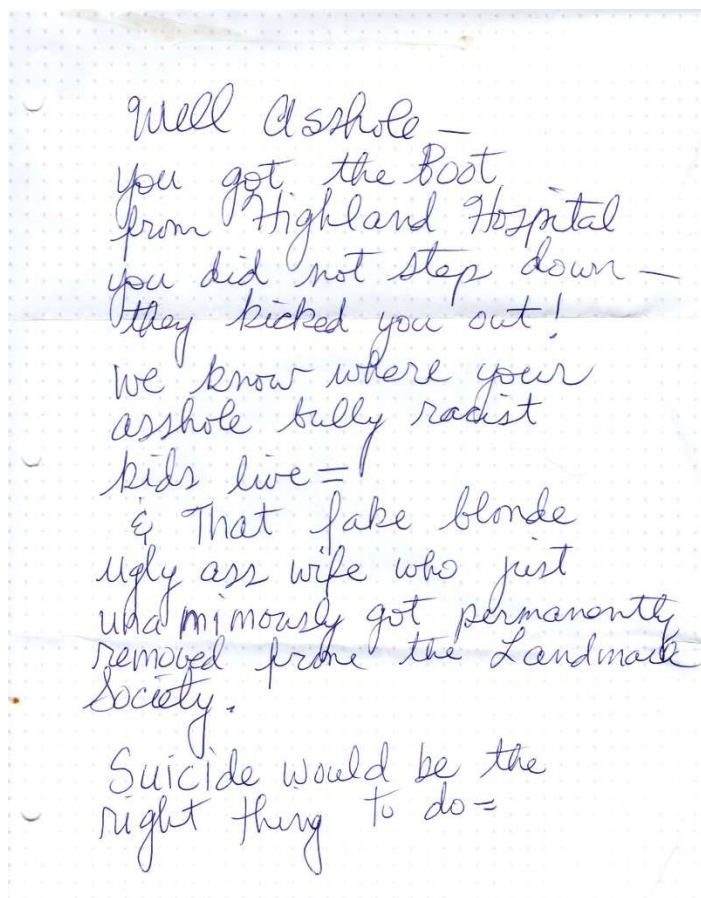 Well Asshole —
you got the Boot
from Highland Hospital
you did not step down —
they kicked you out!
we know where your
asshole bully racist
kids live =
& That fake blonde
ugly ass wife who just
unamimously got permanently
removed frome the Landmark
Society.
Suicide would be the
right thing to do =